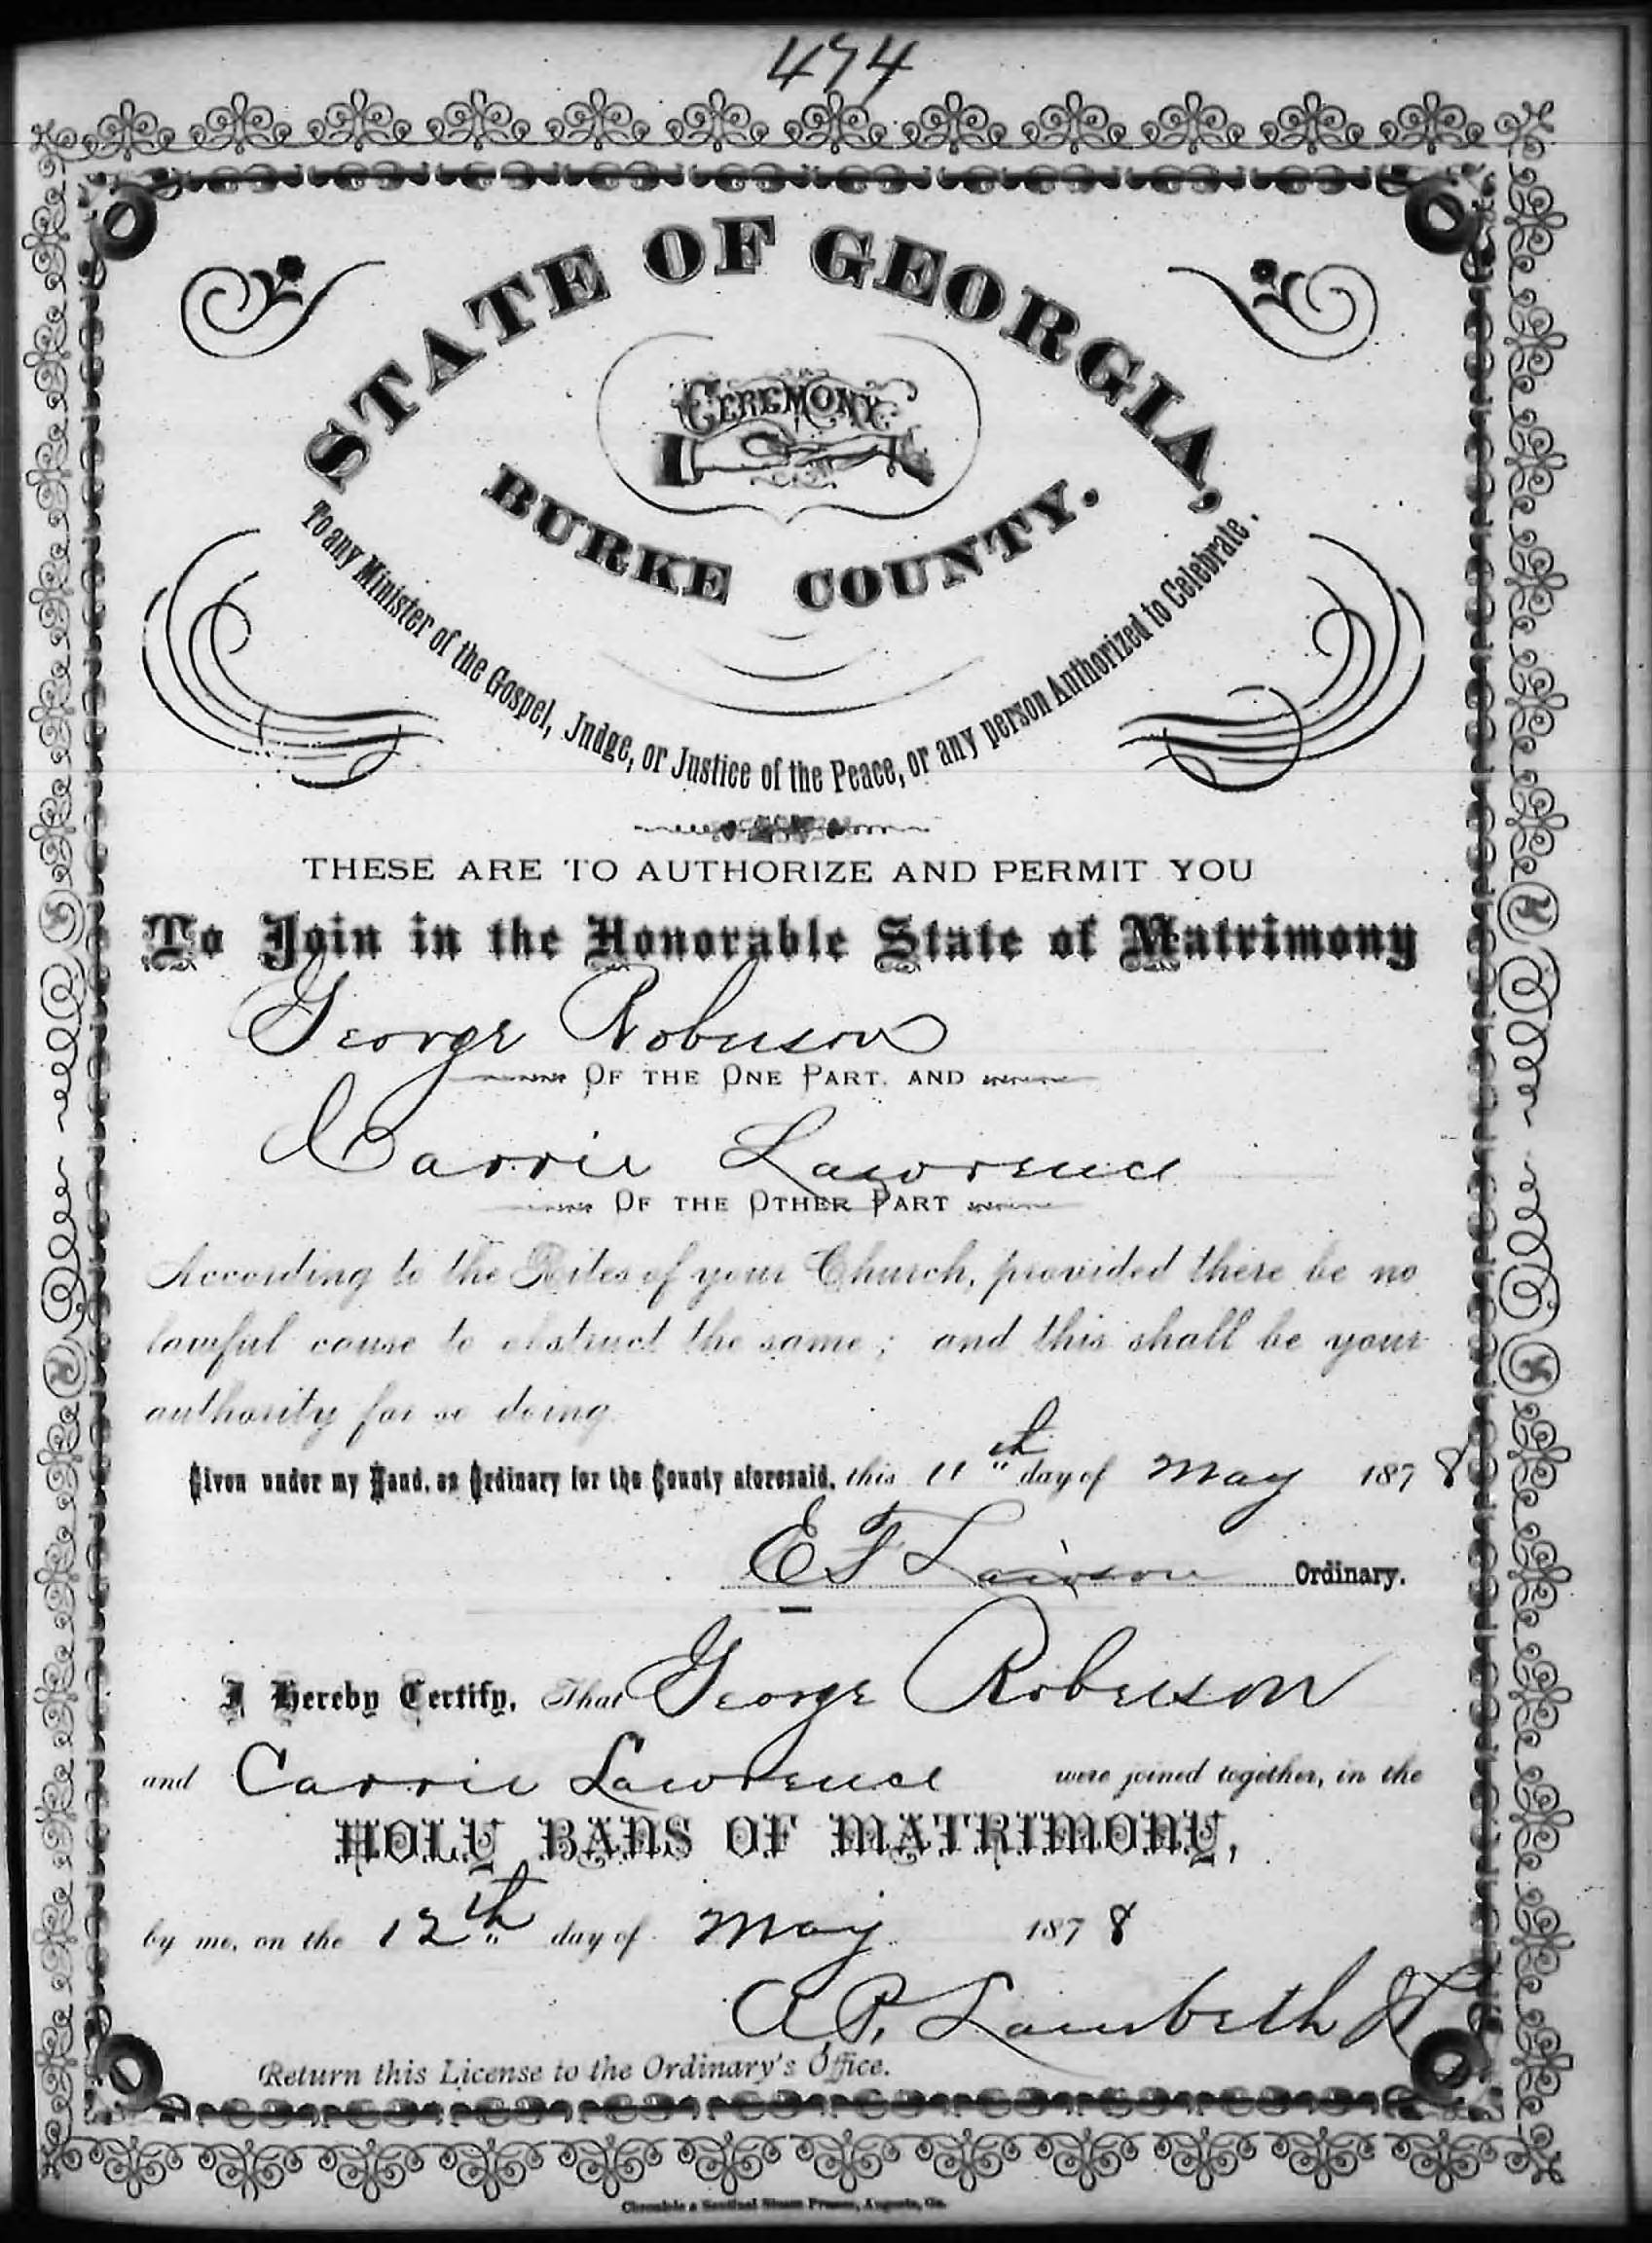 474
STATE OF GEORGIA,
CEREMONY
BURKE COUNTY.
To any Minister of the Gospel, Judge, or Justice of the Peace, or any person Authorized to Celebrate.
THESE ARE TO AUTHORIZE AND PERMIT YOU
To Join in the Honorable State of Matrimony
George Robinson
OF THE ONE PART, AND
Carrie Lawrence
OF THE OTHER PART
According to the Rites of your Church, provided there be no
lawful cause to obstruct the same; and this shall be your
authority for so doing.
Given under my Hand, as Ordinary for the County aforesaid, this 11th day of May 1878
E F Lawson Ordinary.
I Hereby Certify, That George Roberson
and Carrie Lawrence were joined together, in the
HOLY BANS OF MATRIMONY,
by me, on the 12th day of May 1878
A. P. Lambeth
Return this License to the Ordinary's Office.
Chronicle & Sentinel Steam Presses, Augusta, Ga.